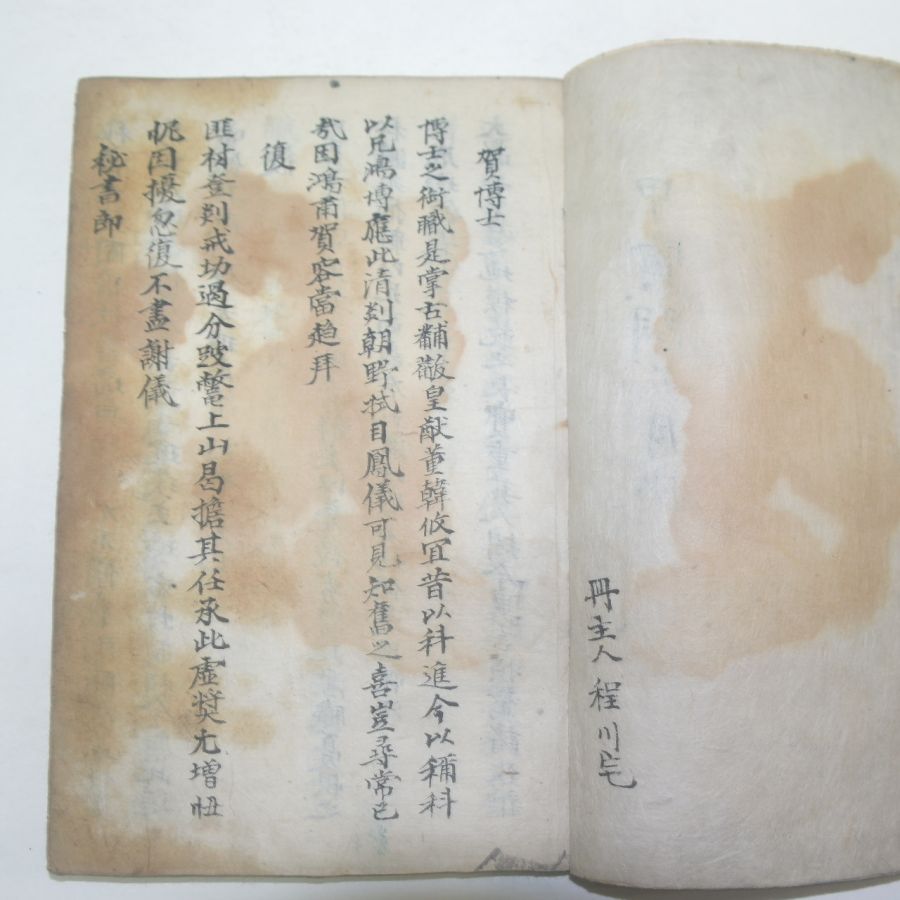 冊主人程川宅
賀博士
博士之銜職是掌古黼黻皇猷董韓攸宜昔以科進今以稱科
以凡鴻博應此清剡朝野拭目鳳儀可見知舊之喜豈尋常已
哉因鴻甫賀容當趋拜
復
匪材登剡戒切過分跛鼈上山曷擔其任承此虛奬尤增忸
怩因擾忽復不盡謝儀
秘書郎